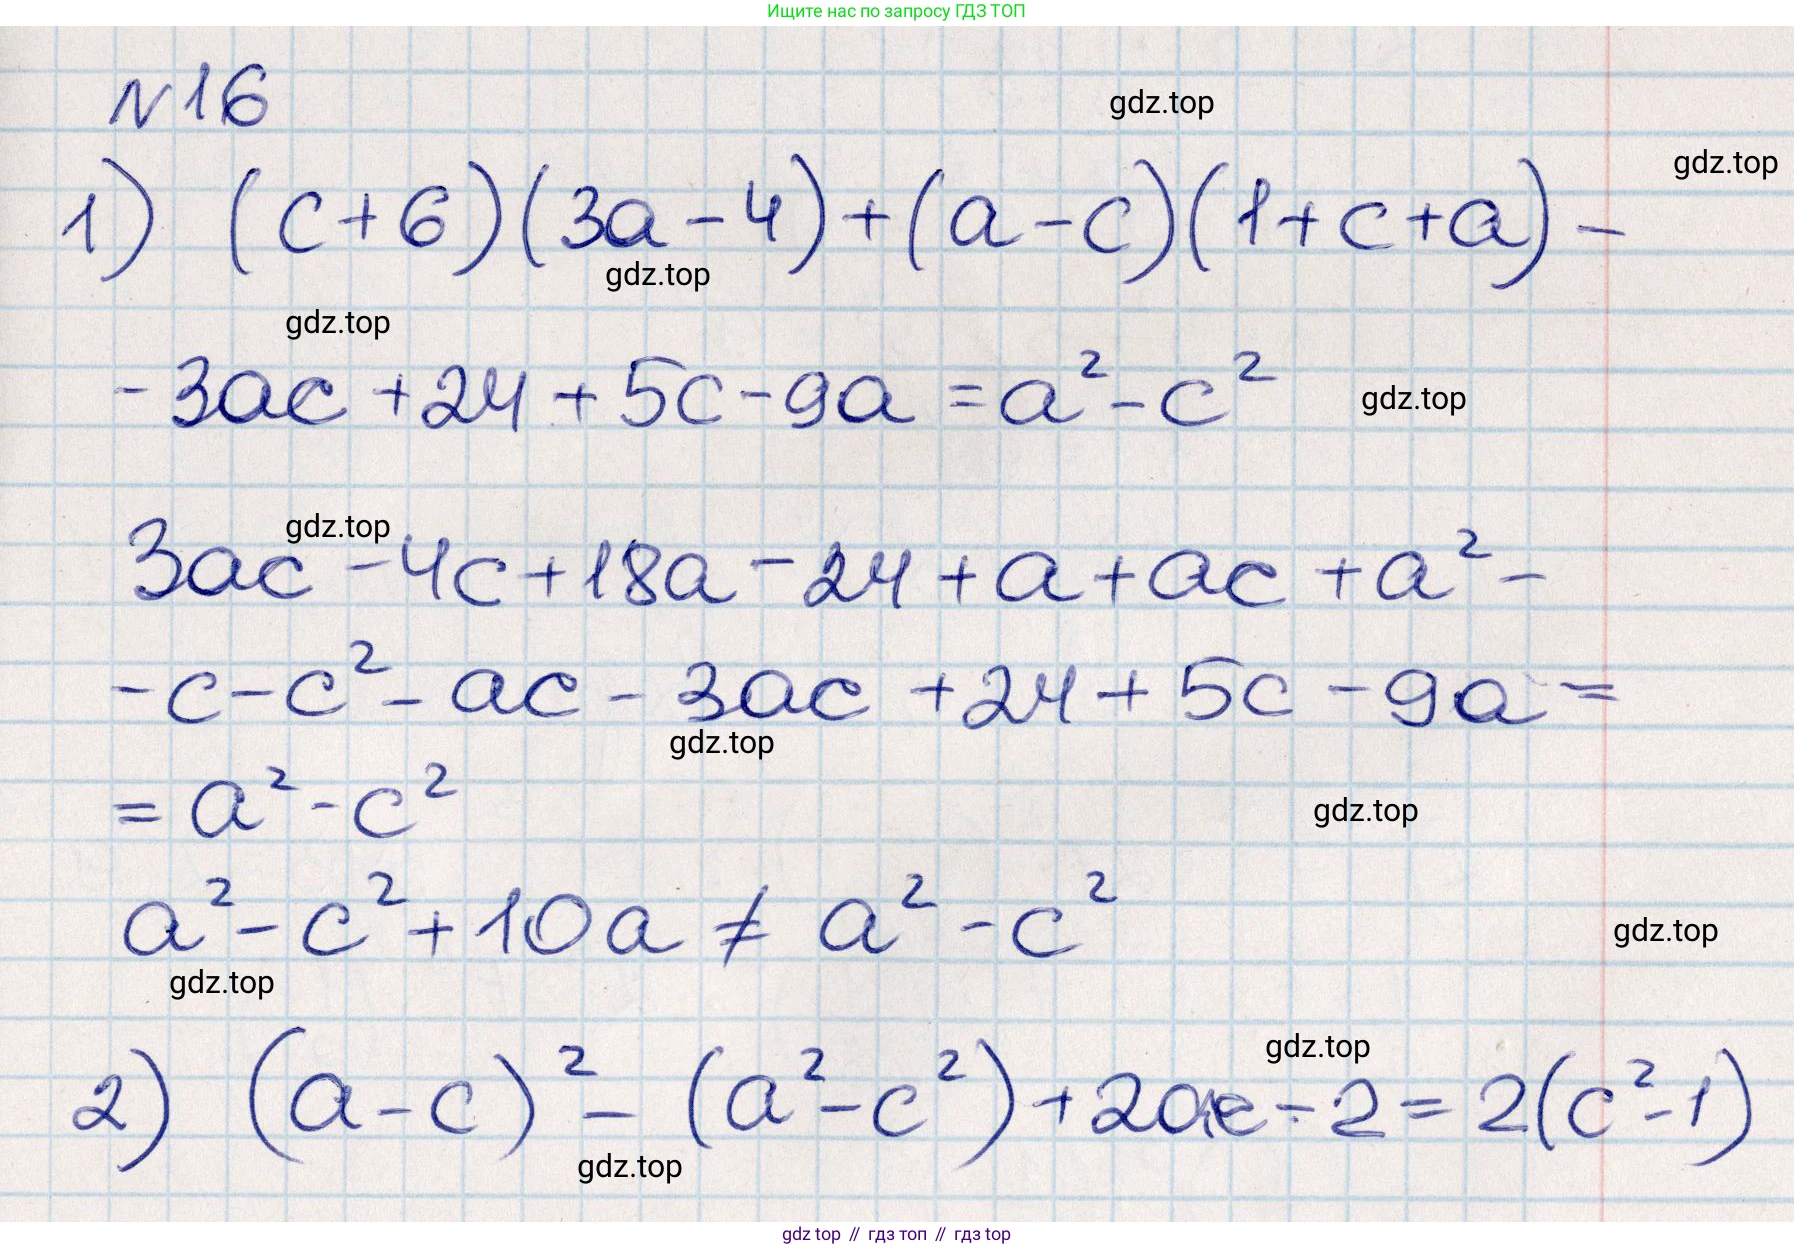 Ищите нас по запросу ГДЗ ТОП
N16
gdz.top
gdz.top
1) (c+6)(3a-4)+(a-c)(1+c+a)-
gdz.top
gdz.top
-3ac+24+5c-9a=a²-c²
gdz.top
gdz.top
3ac-4c+18a-24+a+ac+a²-
-c-c²-ac-3ac+24+5c-9a=
gdz.top
=a²-c²
gdz.top
a²-c²+10a≠a²-c²
gdz.top
gdz.top
gdz.top
2) (a-c)²-(a²-c²)+2ac-2=2(c²-1)
gdz.top
gdz top // гдз топ // гдз top